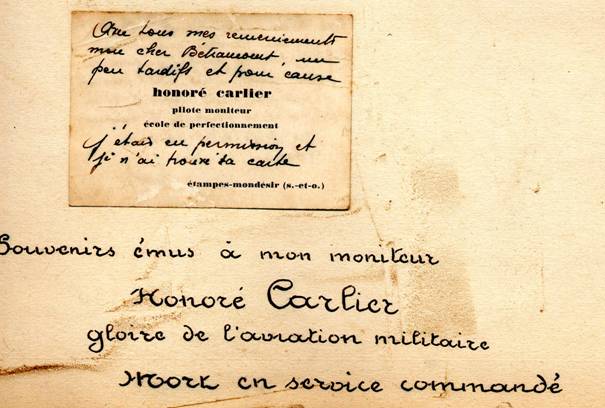 Avec tous mes remerciements
mon cher Bétrancourt, un
peu tardifs et pour cause
honoré carlier
pilote moniteur
école de perfectionnement
j'étais en permission et
je n'ai trouvé ta carte
étampes-mondésir (s.-et-o.)
Souvenirs émus à mon moniteur
Honoré Carlier
gloire de l'aviation militaire
Mort en service commandé